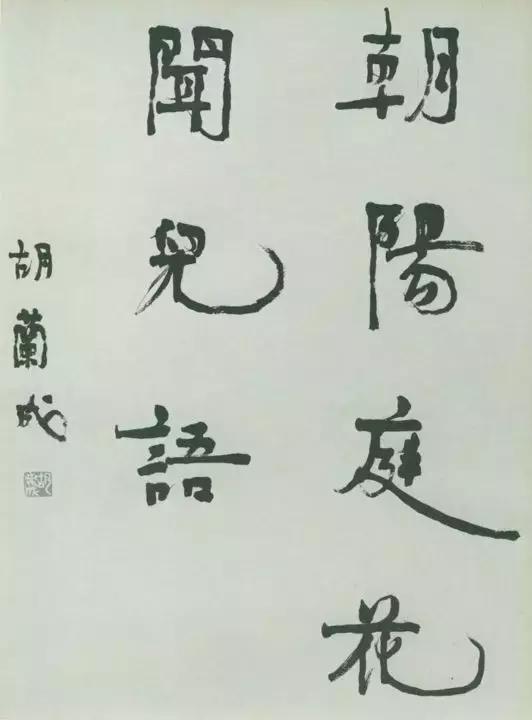 朝陽庭花
聞兒語
胡蘭成